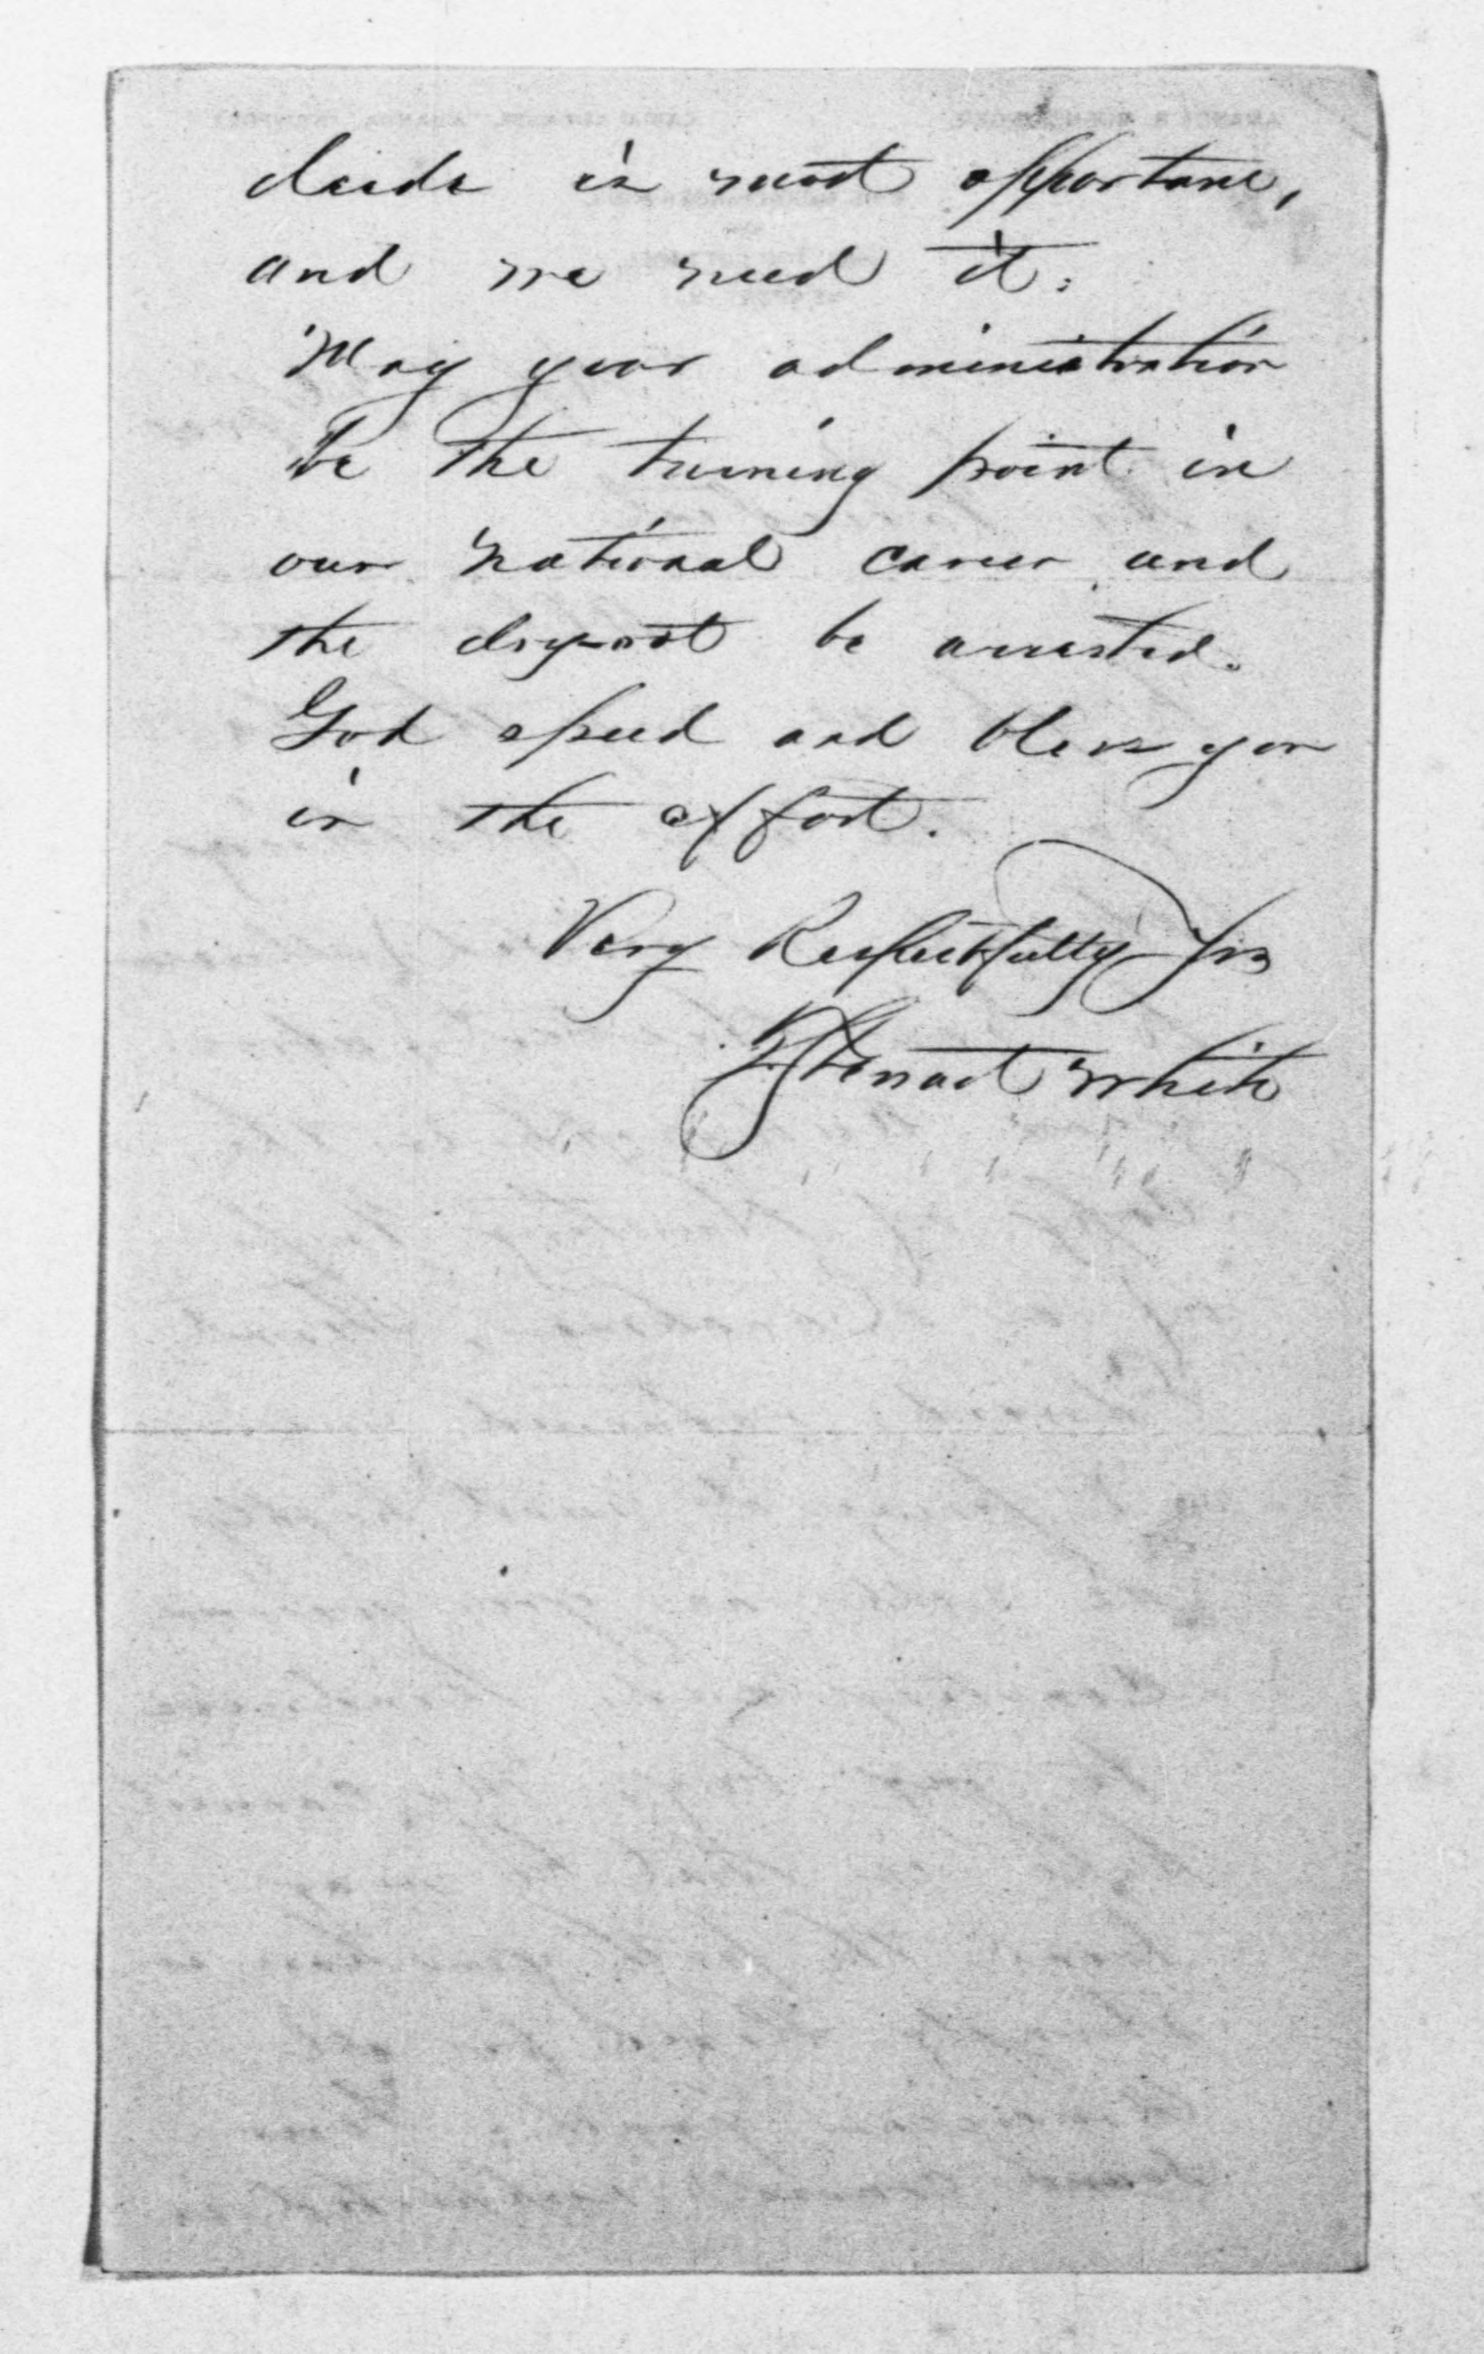 decide is most opportune,
and we need it.
May your administration
be the turning point in
our national career and
the dry-rot be arrested.
God speed and bless you
in the effort.
Very Respectfully Yrs
Stewart White